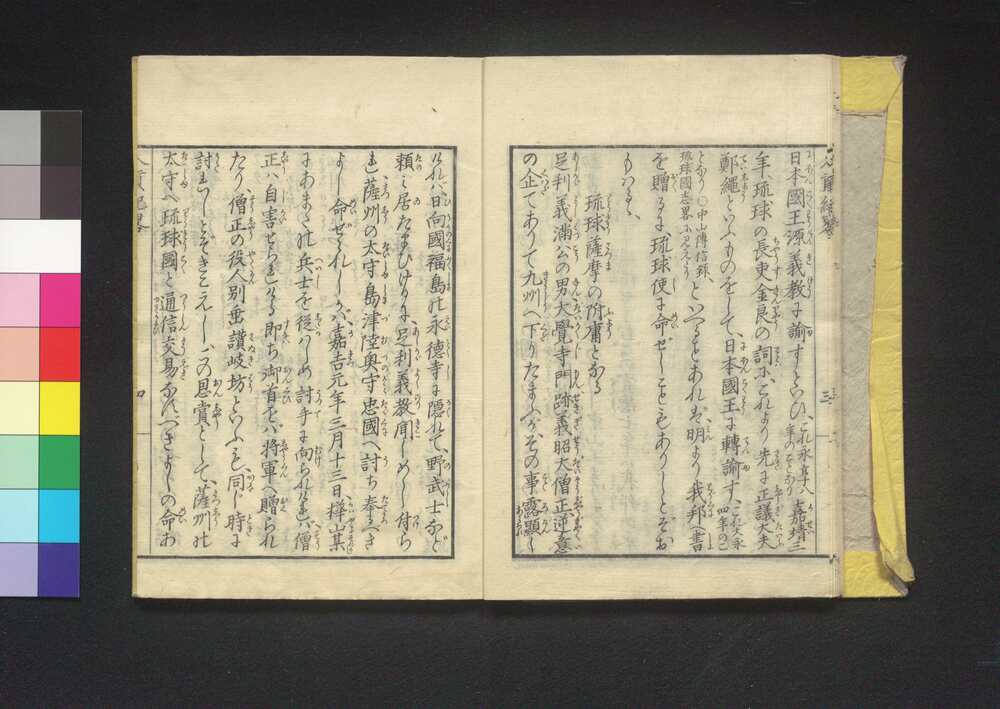 日本國王源ノ義教に諭すといひ、これ永享八年のことなり嘉靖三
年、琉球の長吏金良の詞に、これより先に正議大夫
鄭繩といふものをして、日本國王に轉諭す、これ大永四年のこ
となり○中山傳信録、琉球國志畧に見えたりといへることあれば、明より我邦へ書
を贈るに琉球使に命ぜしこともありしとぞおもはる、
琉球薩摩の附庸となる
足利義滿公の男大覺寺門跡義昭大僧正逆意
の企てありて九州へ下りたまふが、その事露顯し
ければ、日向國福島の永徳寺に隱れて、野武士など
頼み居たまひけるに、足利義教聞しめし付られ
薩州の太守島津陸奥守忠國へ討ち奉るべき
よし命ぜられしかば、嘉吉元年三月十三日樺山某
にあまたの兵士を從はしめ討手に向られければ、僧
正ハ自害せられける即ち御首をバ將軍へ贈られ
たり、僧正の役人別垂讃岐坊といふも、同じ時に
討れしとぞきこえし、この恩賞として、薩州の
太守へ琉球國と通信交易なすべきよしの命あ
四